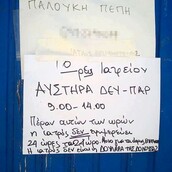 ΠΑΛΟΥΚΗ ΠΕΠΗ
Ώρες Ιατρείου
ΑΥΣΤΗΡΑ ΔΕΥ-ΠΑΡ
9:00-14:00
Πέραν αυτών των ωρών
η ιατρός δεν εφημερεύει
24 ώρες το 24ωρο.
Η ιατρός δεν είναι η